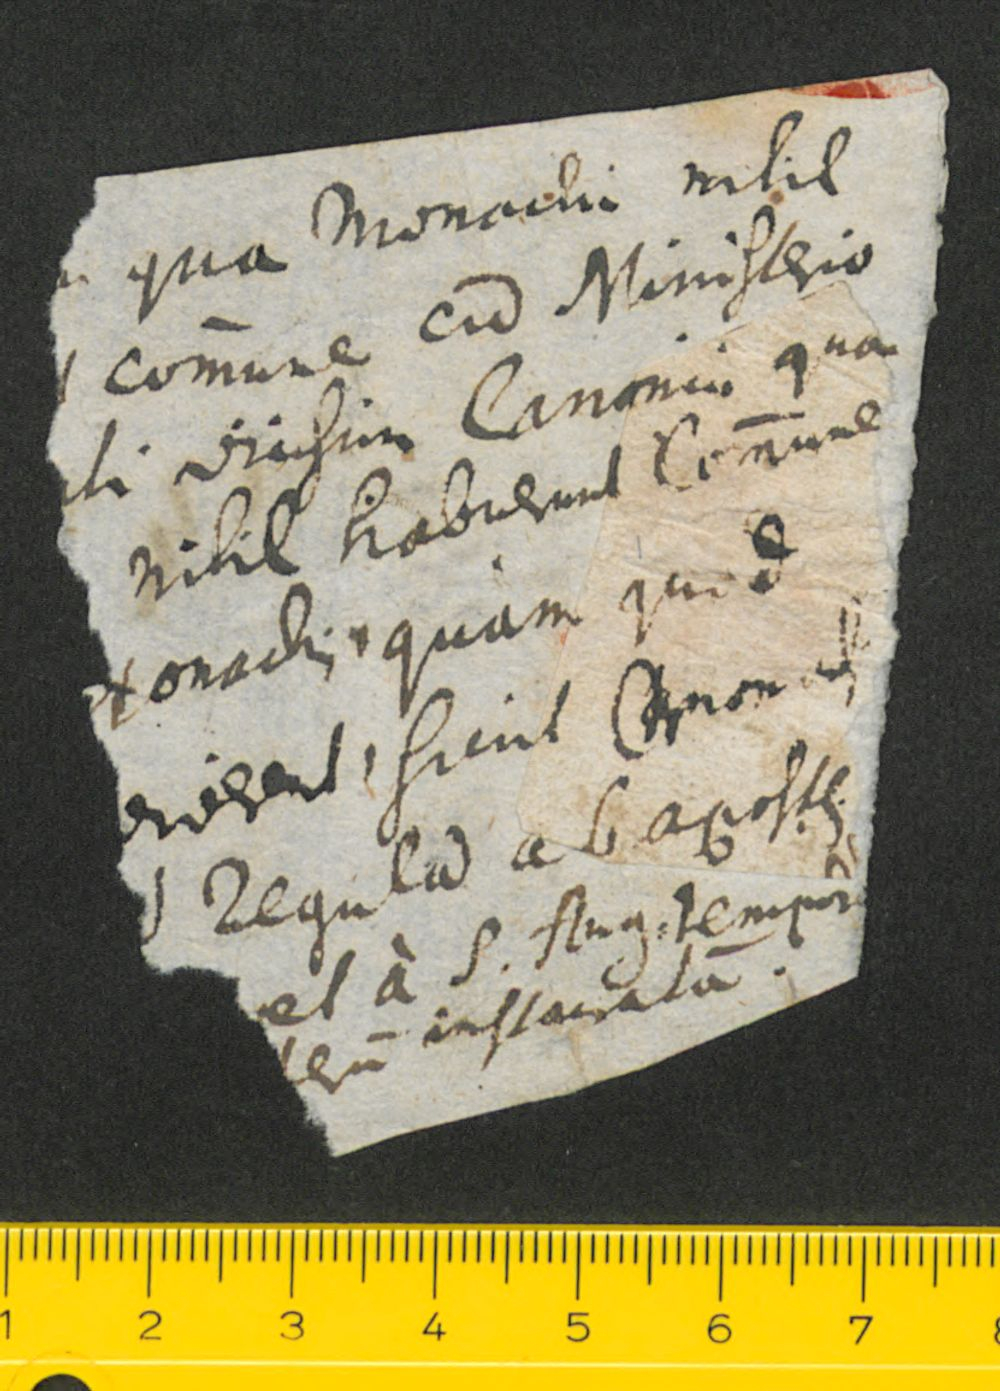 qua Monachi nihil
com̄une cū Ministerio
Canonici qua
nihil habuerunt Com̄une
onachi, quam quod
, sicut Canonici
Regulā ab apostol:
el à S. Aug: tempor
instauratā.
1 2 3 4 5 6 7 8